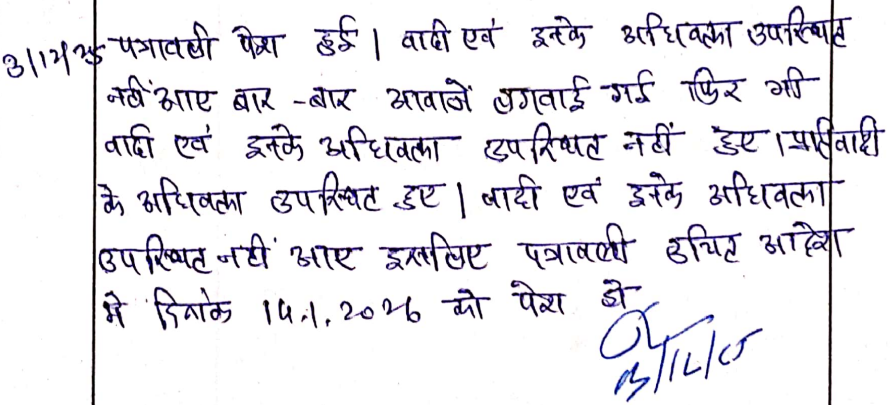 3/12/25 पत्रावली पेश हुई। वादी एवं इनके अधिवक्ता उपस्थित
नहीं आए बार-बार आवाजें लगवाई गई फिर भी
वादी एवं इनके अधिवक्ता उपस्थित नहीं हुए। प्रतिवादी
के अधिवक्ता उपस्थित हुए। वादी एवं इनके अधिवक्ता
उपस्थित नहीं आए इसलिए पत्रावली उचित आदेश
मे दिनांक 14.1.2026 को पेश हो
3/12/25